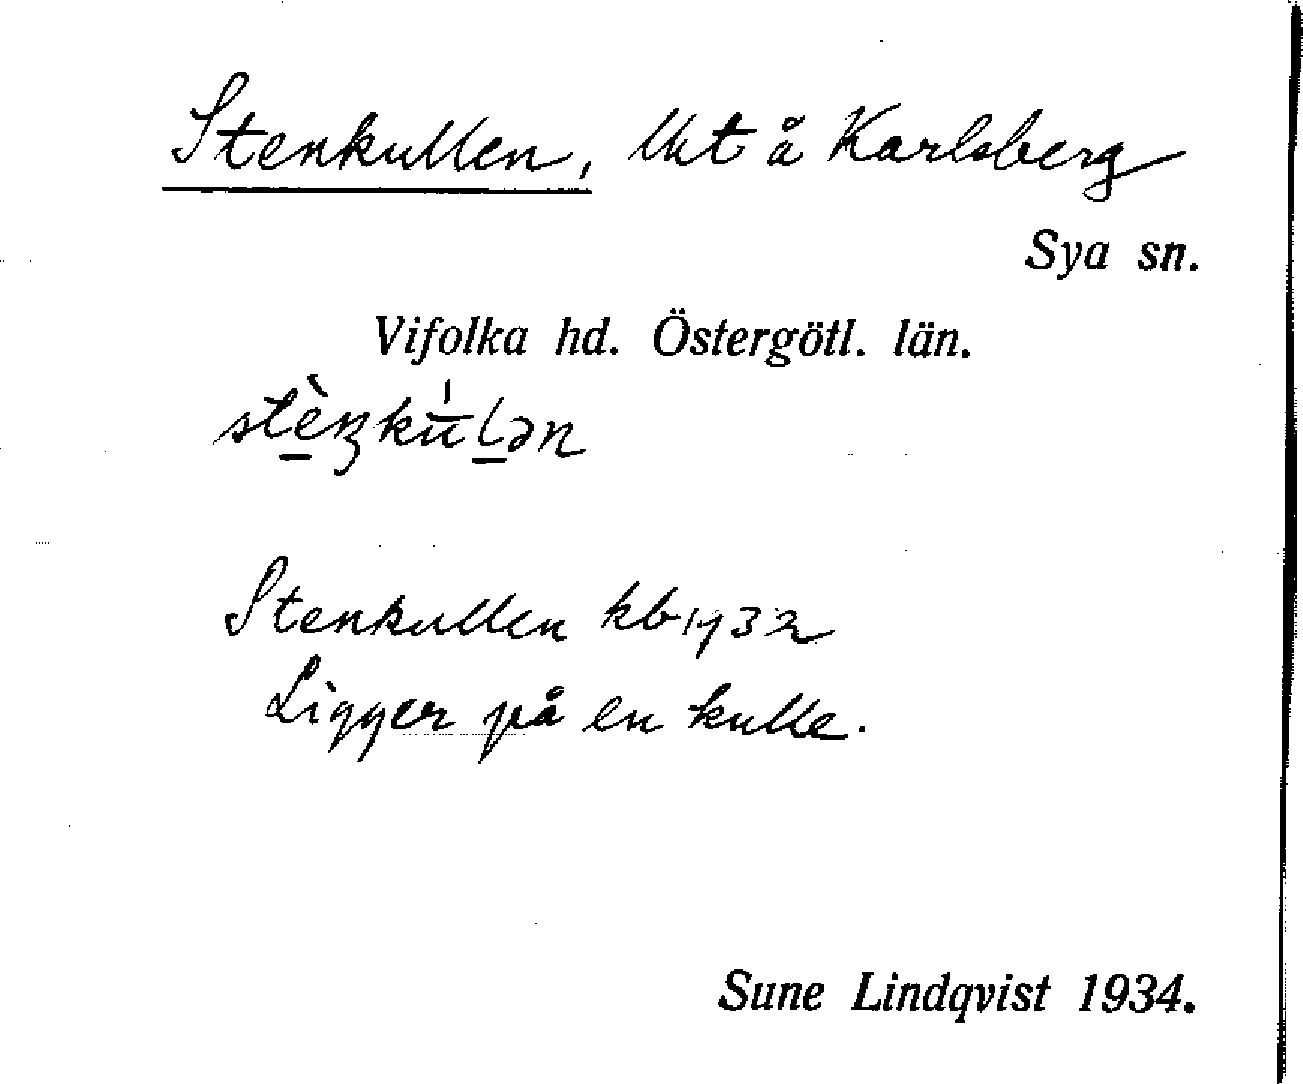 Stenkullen, lht å Karlsberg
Sya sn.
Vifolka hd. Östergötl. län.
Stenkullen kb 1932
Ligger på en kulle.
Sune Lindqvist 1934.